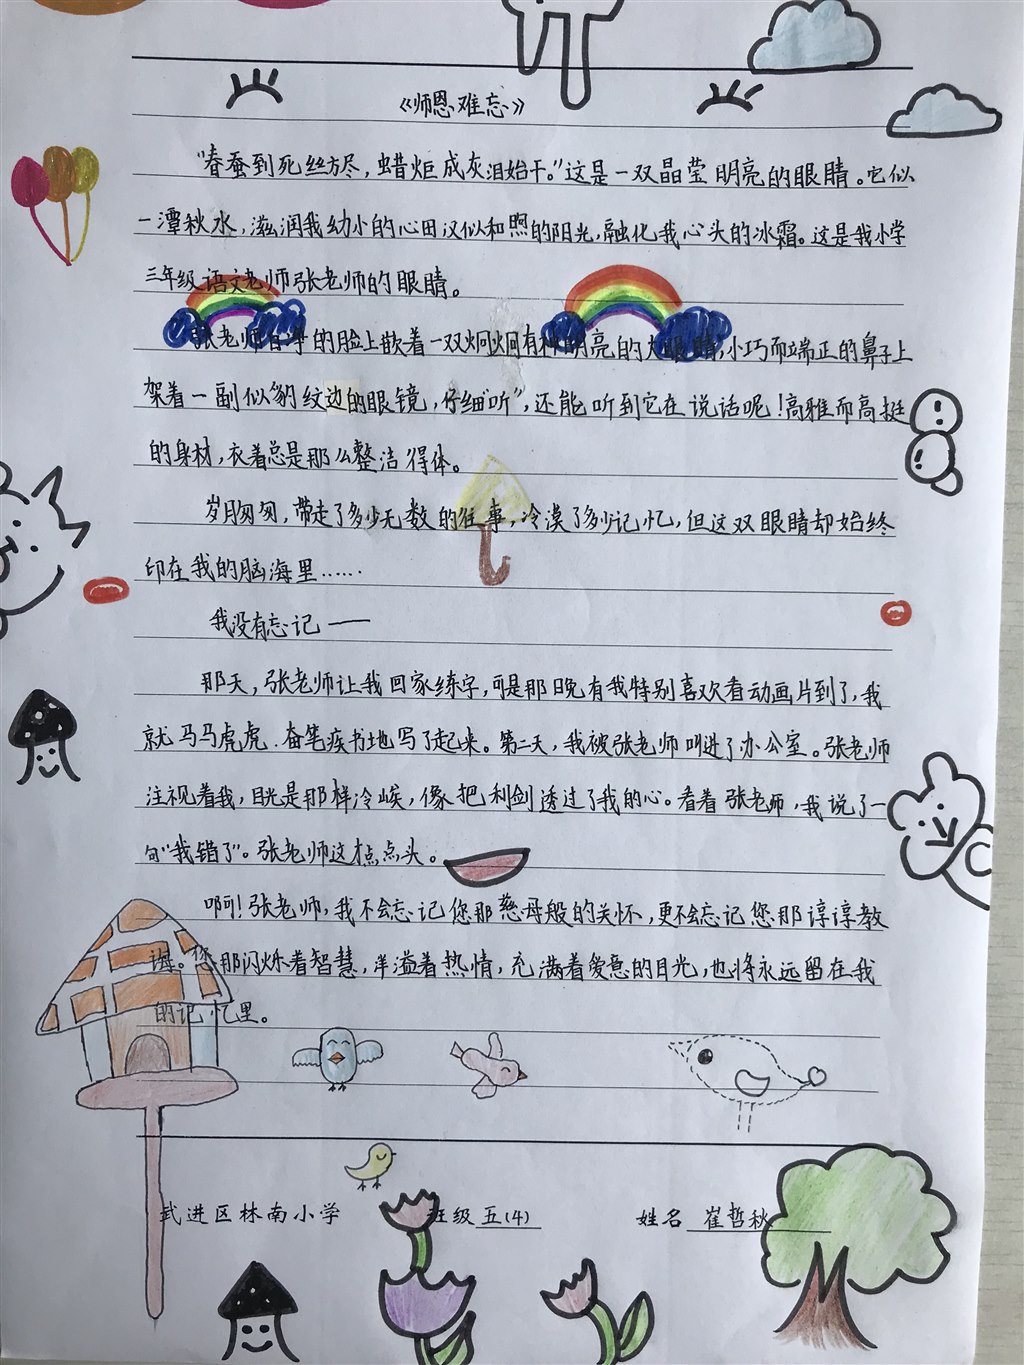 《师恩难忘》
“春蚕到死丝方尽，蜡炬成灰泪始干。”这是一双晶莹明亮的眼睛。它似
一潭秋水，滋润我幼小的心田又似和煦的阳光，融化我心头的冰霜。这是我小学
三年级语文老师张老师的眼睛。
张老师白净的脸上嵌着一双炯炯有神明亮的大眼睛，小巧而端正的鼻子上
架着一副似豹纹边的眼镜，仔细“听”，还能听到它在说话呢！高雅而高挺
的身材，衣着总是那么整洁得体。
岁月匆匆，带走了多少无数的往事，冷漠了多少记忆，但这双眼睛却始终
印在我的脑海里……
我没有忘记——
那天，张老师让我回家练字，可是那晚有我特别喜欢看动画片到了，我
就马马虎虎．奋笔疾书地写了起来。第二天，我被张老师叫进了办公室。张老师
注视着我，目光是那样冷峻，像把利剑透过了我的心。看着张老师，我说了一
句“我错了”。张老师这才点点头。
啊！张老师，我不会忘记您那慈母般的关怀，更不会忘记您那谆谆教
诲。您那闪烁着智慧，洋溢着热情，充满着爱意的目光，也将永远留在我
的记忆里。
武进区林南小学 班级 五(4) 姓名 崔哲秋